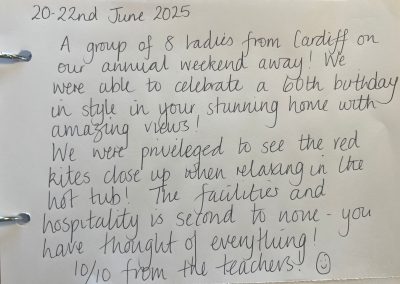 20-22nd June 2025
A group of 8 ladies from Cardiff on
our annual weekend away! We
were able to celebrate a 60th birthday
in style in your stunning home with
amazing views!
We were priveleged to see the red
kites close up when relaxing in the
hot tub! The facilities and
hospitality is second to none - you
have thought of everything!
10/10 from the teachers! ☺